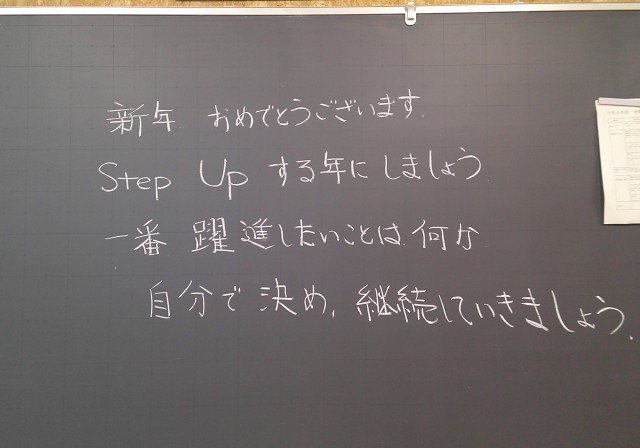 新年 おめでとうございます.
Step Up する年にしましょう
一番 躍進したいことは何か
自分で決め、継続していきましょう.